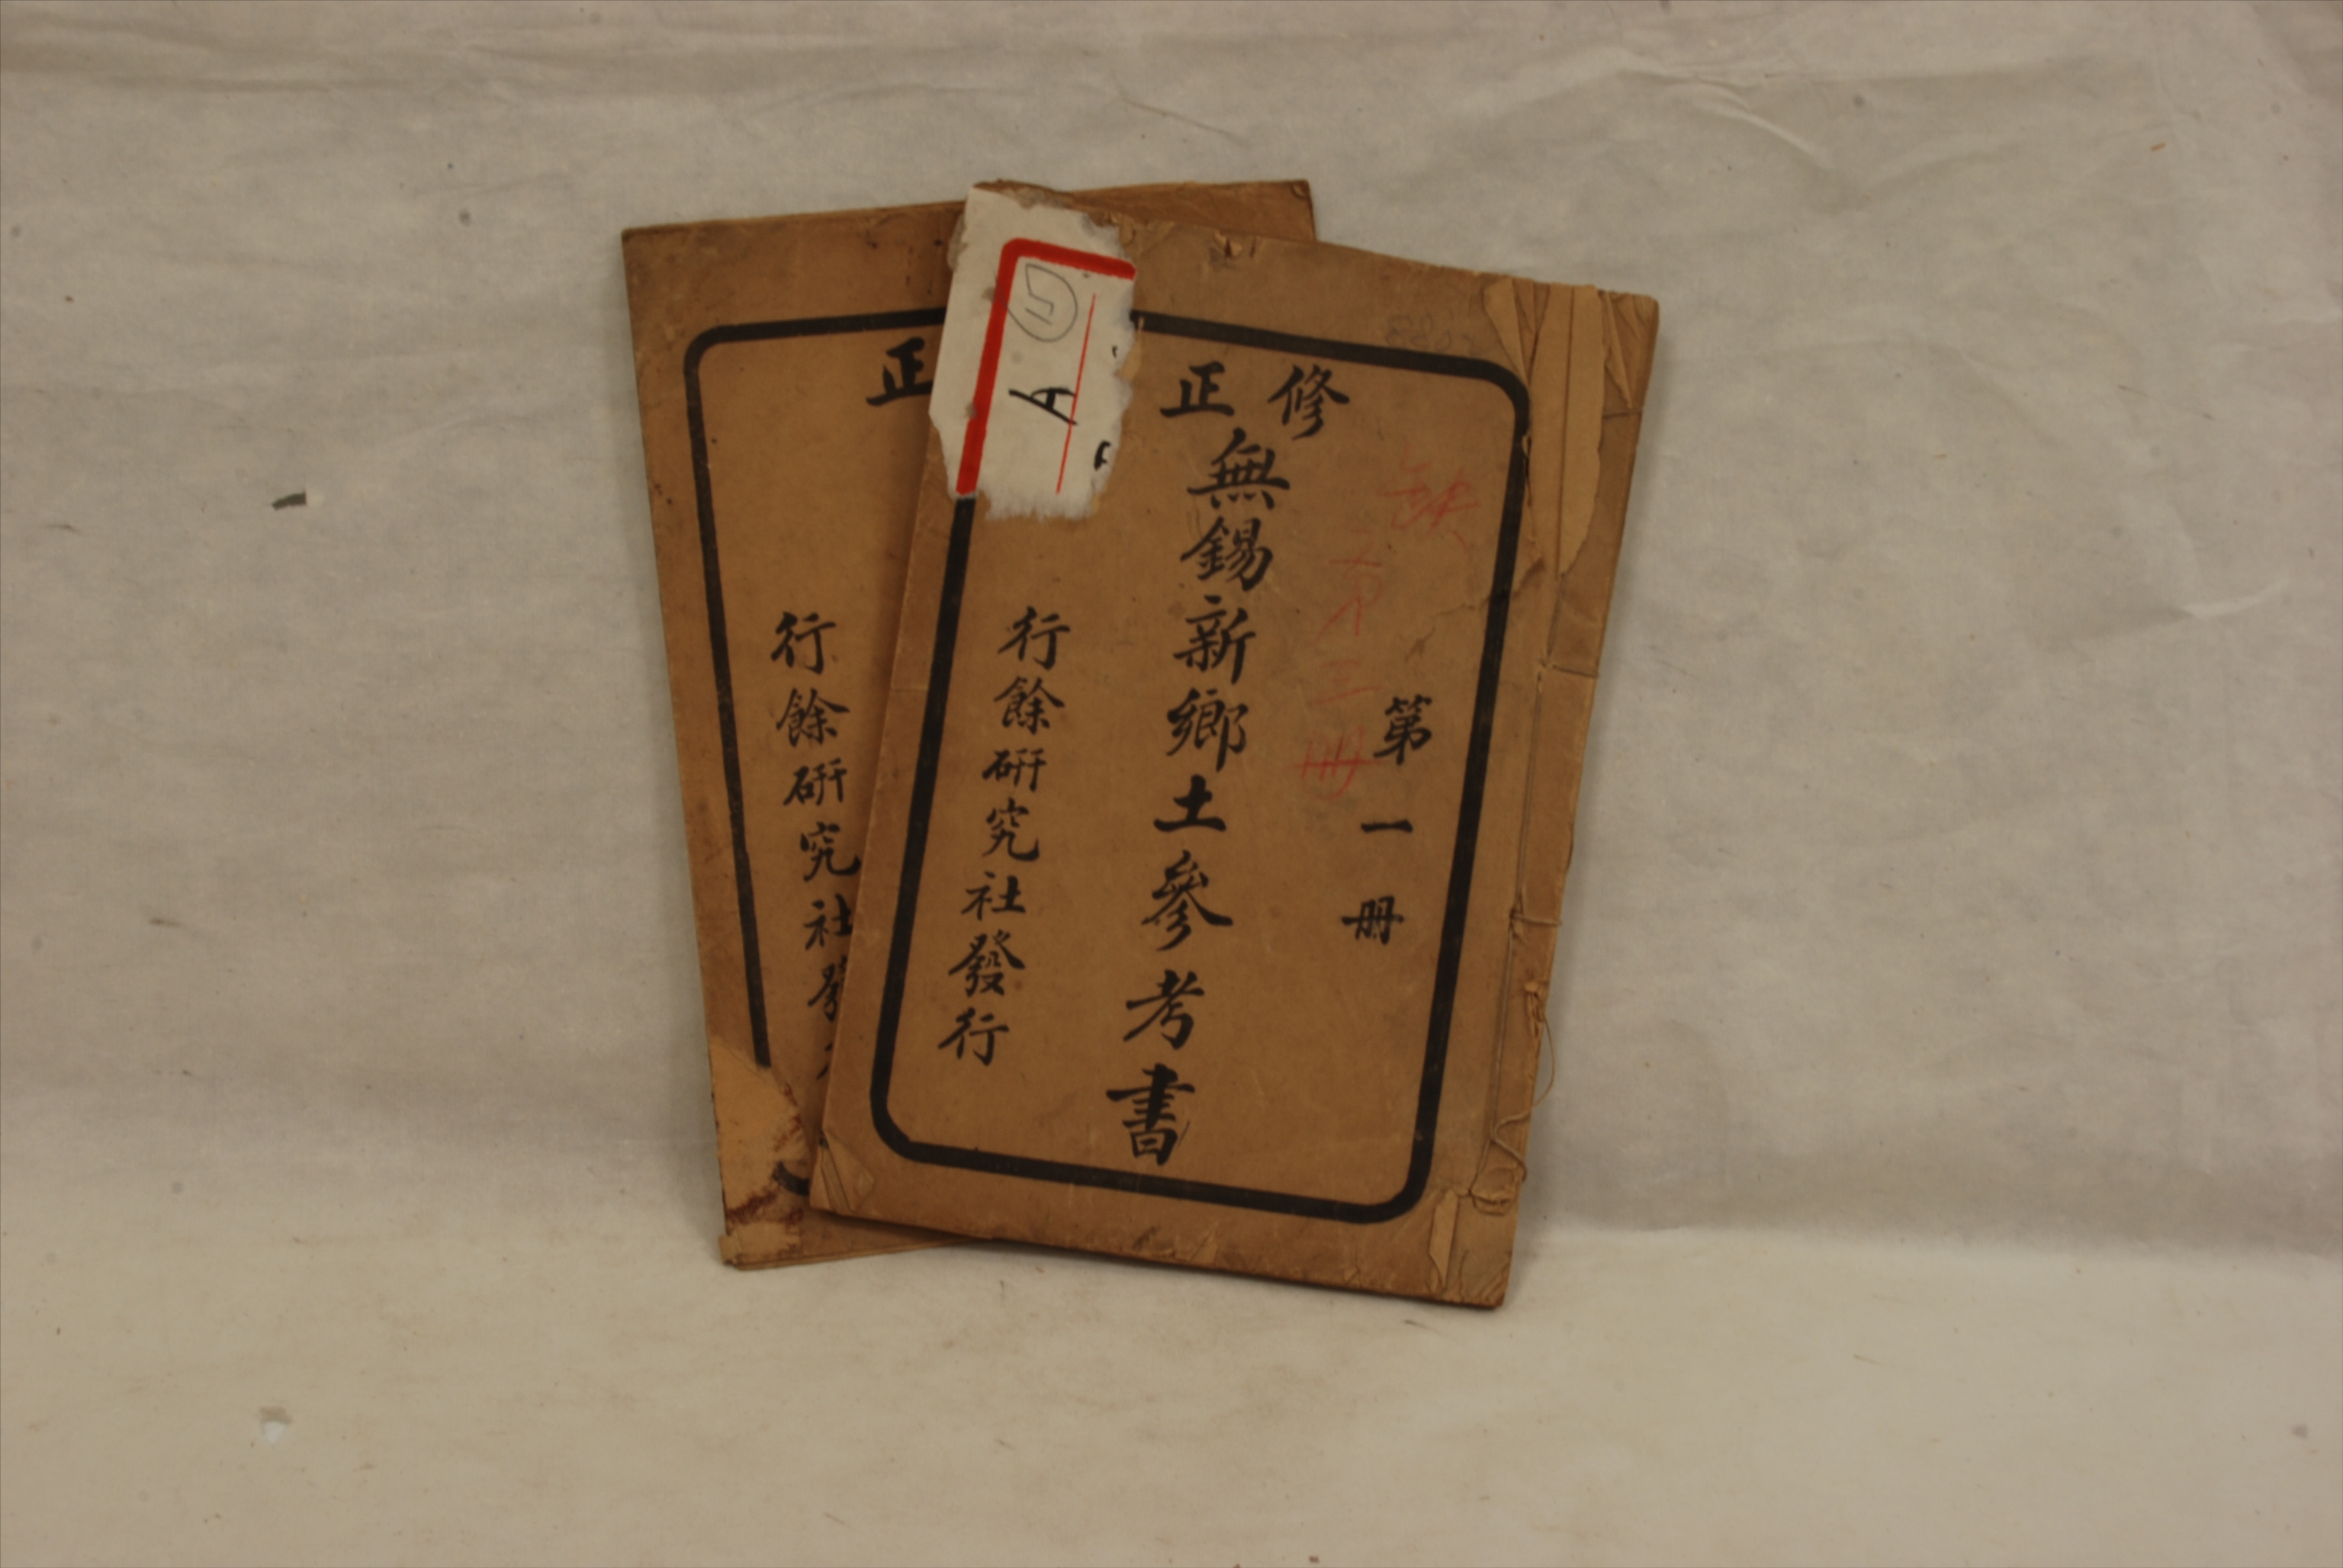 修正
無錫新鄉土參考書
第一冊
缺
第三冊
行餘研究社發行
A
正
行餘研究社發